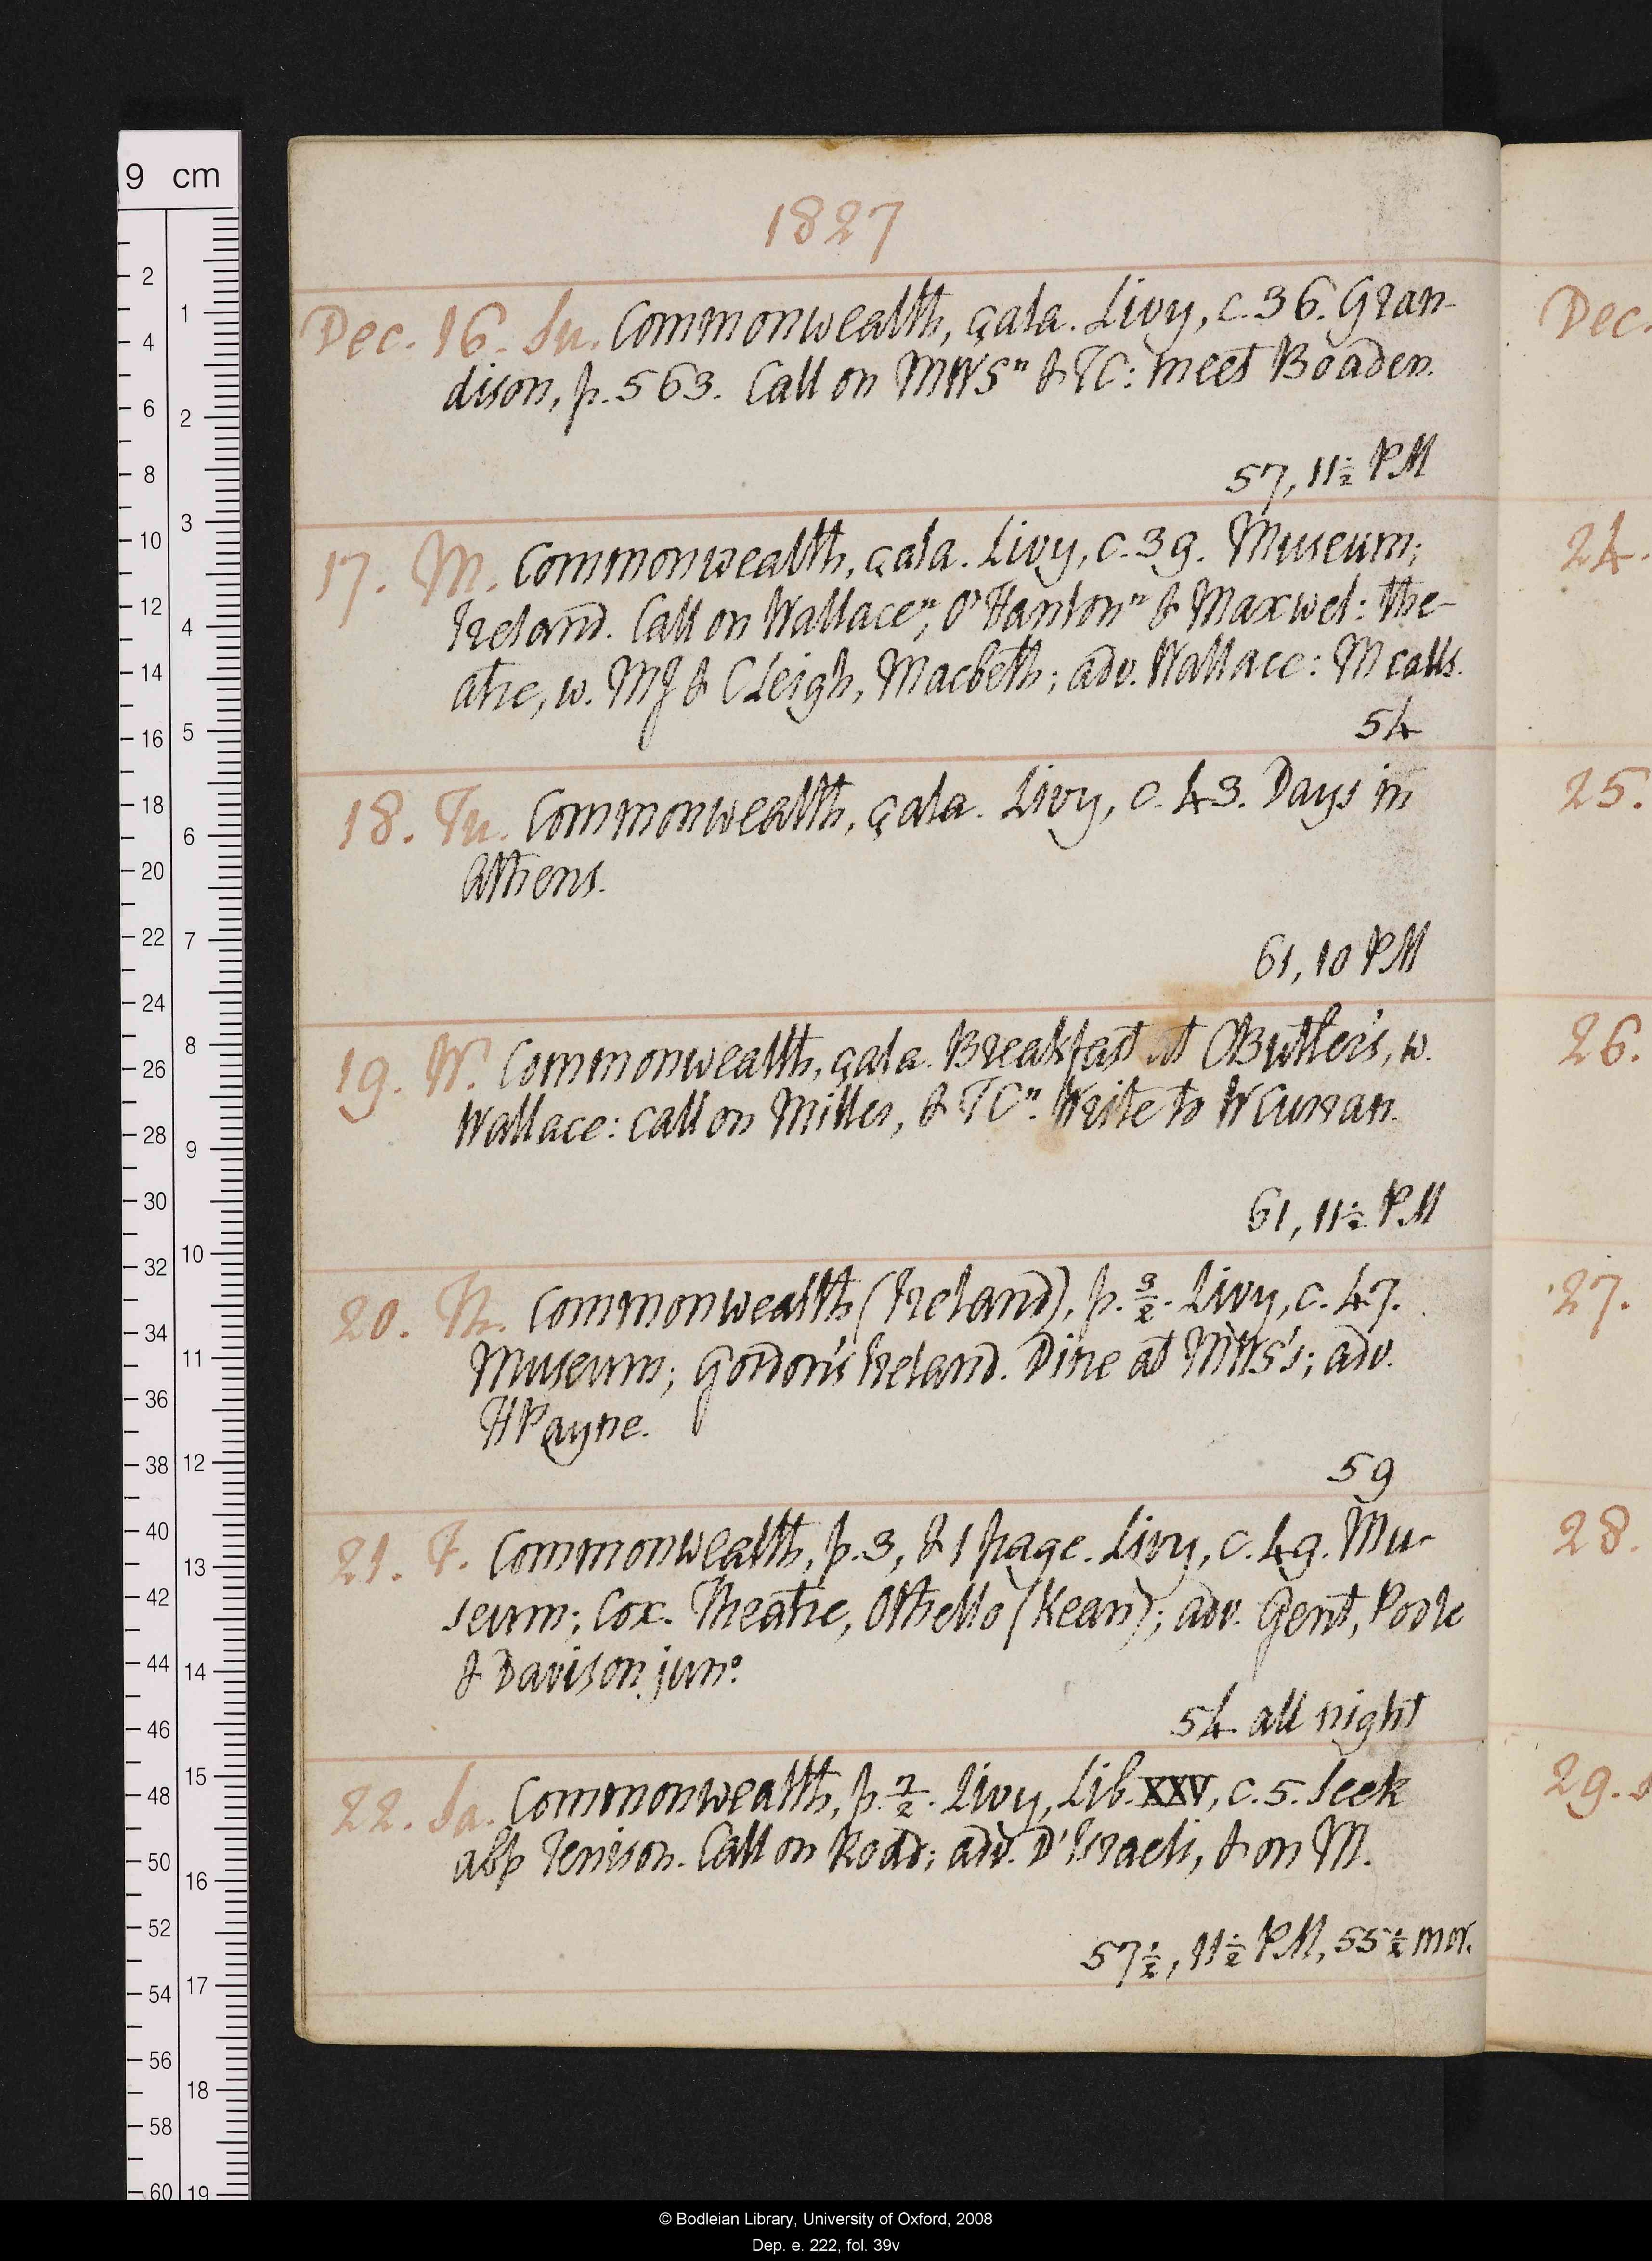 9 cm
1827
Dec. 16. Su. Commonwealth, çala. Livy, c. 36. Gran-
dison, p. 563. Call on MWSⁿ & TC: meet Boaden.
57, 11½ PM
17. M. Commonwealth, çala. Livy, c. 39. Museum;
Ireland. Call on Wallaceⁿ, O'Hanlonⁿ & Maxwel: the-
atre, w. MJ & CLeigh, Macbeth; adv. Wallace: M calls.
54
18. Tu. Commonwealth, çala. Livy, c. 43. Days in
Athens.
61, 10 PM
19. W. Commonwealth, çala. Breakfast at CButler's, w.
Wallace: call on Miller, & TCⁿ. Write to WCurran.
61, 11½ PM
20. Th. Commonwealth (Ireland), p. 3/2. Livy, c. 47.
Museum; Gordon's Ireland. Dine at MWS's; adv.
HPayne.
59
21. F. Commonwealth, p. 3, & 1 page. Livy, c. 49. Mu-
seum; Cox. Theatre, Othello (Kean); adv. Gent, Poole
& Davison junᵒ.
54 all night
22. Sa. Commonwealth, p. 7/2. Livy, Lib. XXV, c. 5. Seek
abp Tenison. Call on Road; adv. D'Israeli, & on M.
57½, 11½ PM, 55½ mor.
Dec.
24.
25.
26.
27.
28.
29.
2
4
6
8
10
12
14
16
18
20
22
24
26
28
30
32
34
36
38
40
42
44
46
48
50
52
54
56
58
60
1
2
3
4
5
6
7
8
9
10
11
12
13
14
15
16
17
18
19
© Bodleian Library, University of Oxford, 2008
Dep. e. 222, fol. 39v